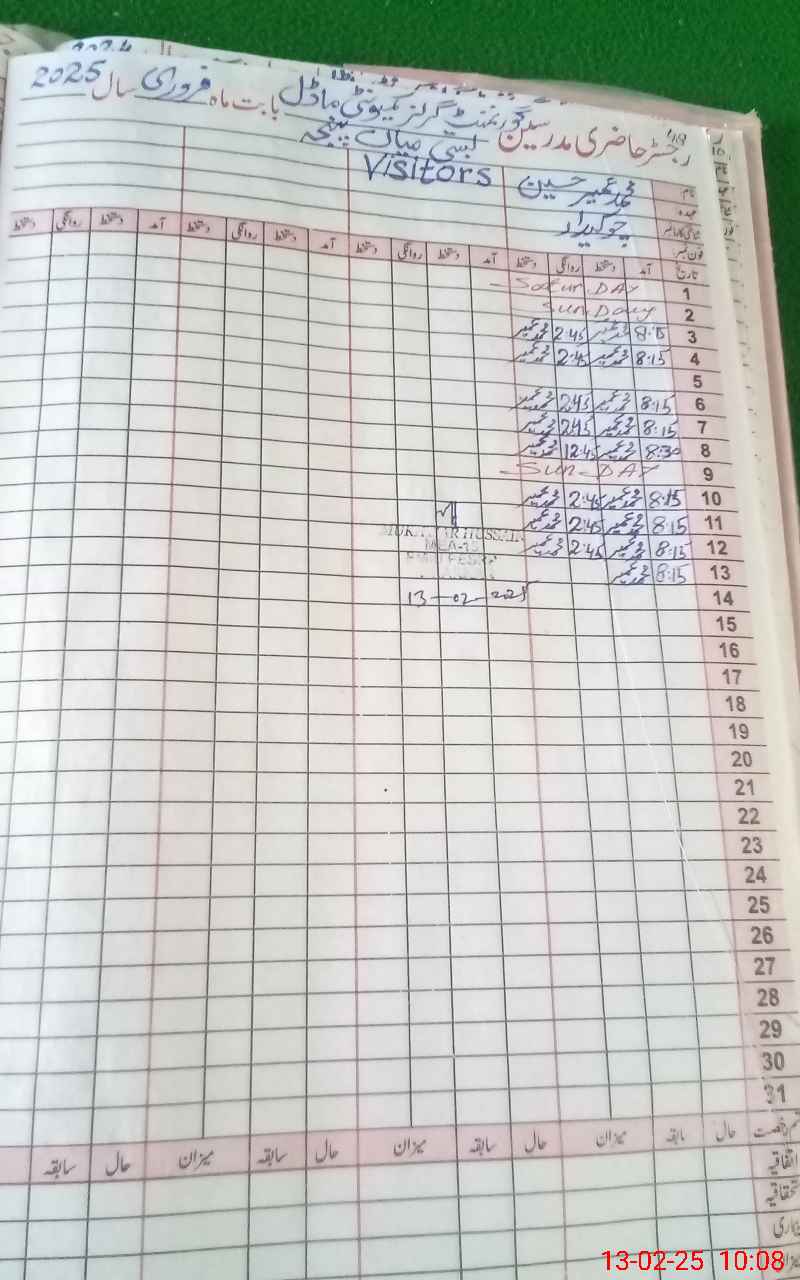 48
رجسٹر حاضری مدرسین گورنمنٹ گرلز کمیونٹی ماڈل بابت ماہ فروری سال 2025
بستی میاں پنجہ
نام محمد عمیر حسین Visitors
عہدہ چوکیدار
فون نمبر
تاریخ آمد دستخط روانگی دستخط آمد دستخط روانگی دستخط آمد دستخط روانگی دستخط آمد دستخط روانگی دستخط
1 - Satur DAY
2 Sun Day
3 8:15 محمد عمیر 2:45 محمد عمیر
4 8:15 محمد عمیر 2:45 محمد عمیر
5
6 8:15 محمد عمیر 2:45 محمد عمیر
7 8:15 محمد عمیر 2:45 محمد عمیر
8 8:30 محمد عمیر 12:45 محمد عمیر
9 - Sun - DAY
10 8:15 محمد عمیر 2:45 محمد عمیر
11 8:15 محمد عمیر 2:45 محمد عمیر
12 8:15 محمد عمیر 2:45 محمد عمیر
13 8:15 محمد عمیر
HUSSAIN
MEA-15
14
13-02-2025
15
16
17
18
19
20
21
22
23
24
25
26
27
28
29
30
31
قسم رخصت حال سابقہ میزان حال سابقہ میزان حال سابقہ میزان حال سابقہ
اتفاقیہ
استحقاقیہ
بیماری
میزان
13-02-25 10:08